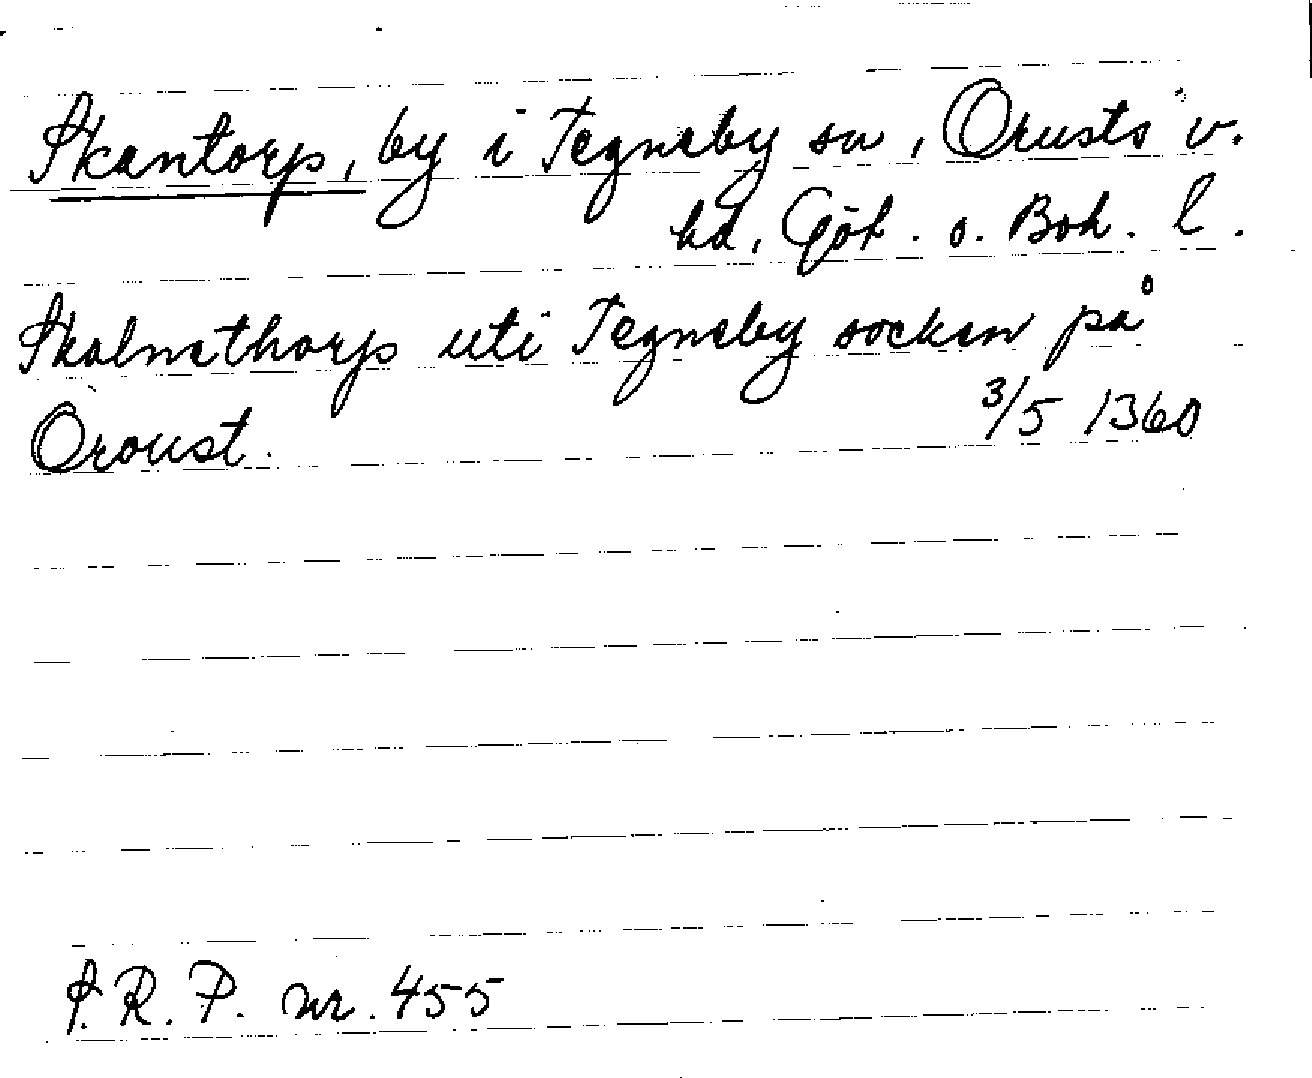 Skantorp, by i Tegneby sn, Orusts v.
hd, Göt. o. Boh. l.
Skalmethorp uti Tegneby socken på
Oroust. 3/5 1360
S.R.P. nr. 455